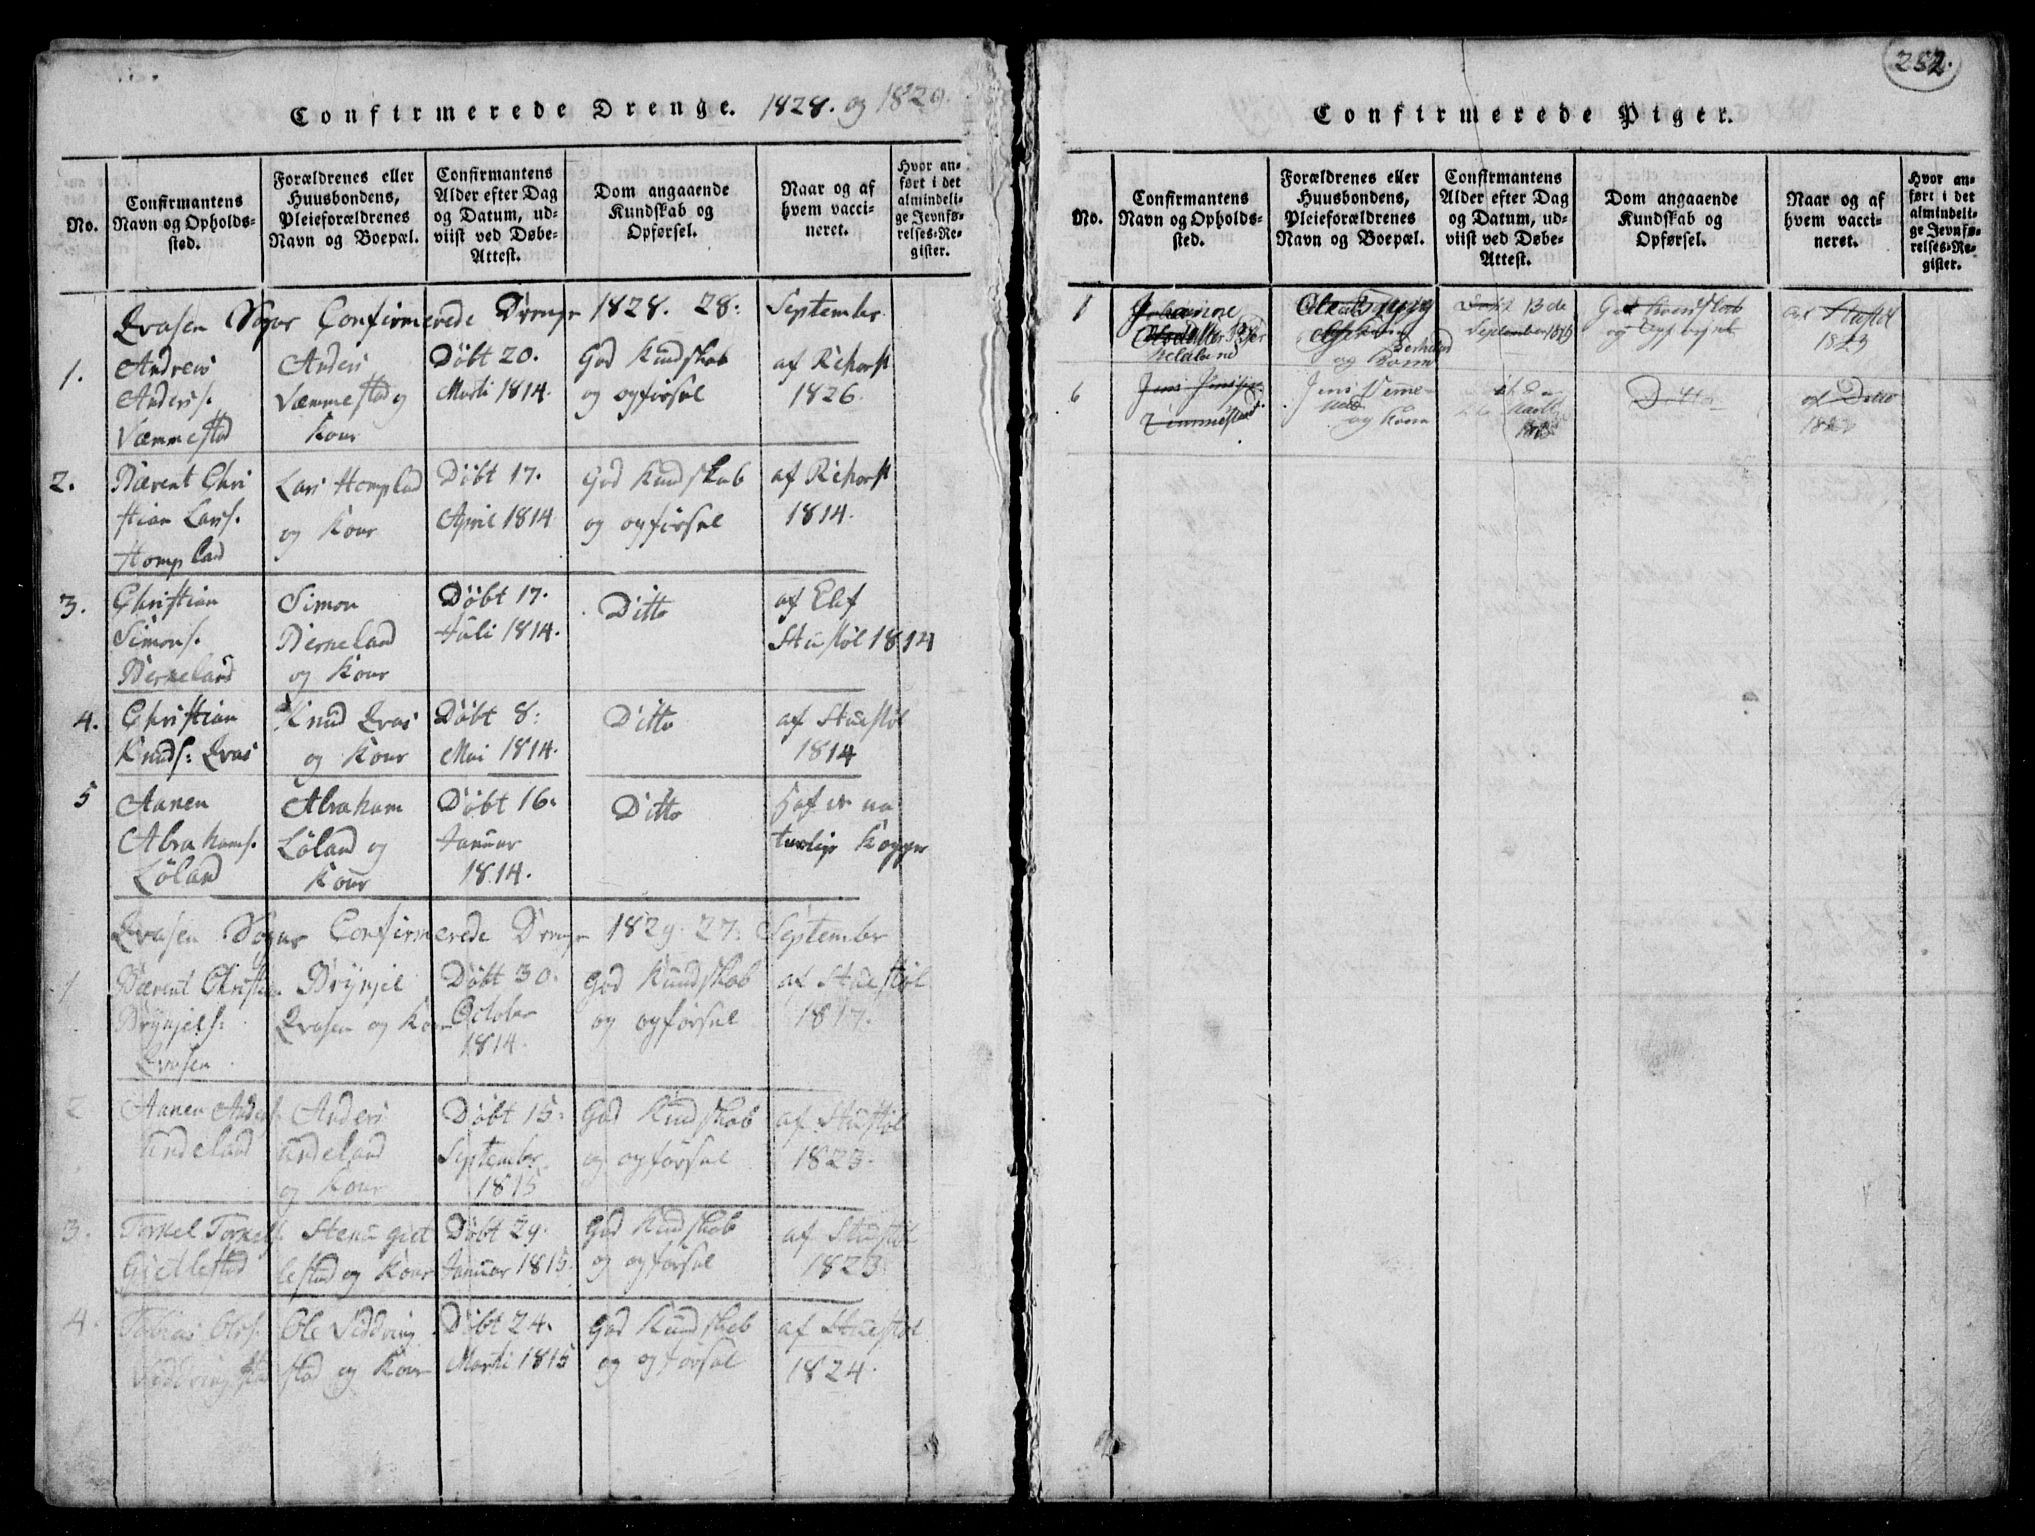 Confirmerede Drenge. 1828. og 1829.
No.
Confirmantens
Navn og Opholds-
sted.
Forældrenes eller
Huusbondens,
Pleieforældrenes
Navn og Boepæl.
Confirmantens
Alder efter Dag
og Datum, ud-
viist ved Døbe-
Attest.
Dom angaaende
Kundskab og
Opførsel.
Naar og af
hvem vacci-
neret.
Hvor an-
ført i det
almindeli-
ge Jevnfø-
relses-Re-
gister.
Qvasen Sogns Confirmerede Drenge 1828. 28: September
1.
Andreas
Anders.
Væmmestad
Anders
Væmmestad og
Kone
Døbt 20.
Marti 1814.
God Kundskab
og opførsel
af Rehorst
1826.
2.
Bærent Chri
stian Lars.
Hompland
Lars Hompland
og Kone
Døbt 17.
April 1814
God Kundskab
og opførsel
af Rehorst
1814.
3.
Christian
Simons.
Berneland
Simon
Berneland
og Kone
Døbt 17.
Juli 1814.
Ditto
af Elef
Stustøl 1814
4.
Christian
Knuds: Qvas
Knud Qvas
og Kone
Døbt 8:
Mai 1814.
Ditto
af Stuestøl
1814
5
Aanen
Abrahams.
Løland
Abraham
Løland og
Kone
Døbt 16.
Januar
1814.
Ditto
Haft de na
turlige Kopper
Qvasen Sogns Confirmerede Drenge 1829. 27: September
1
Bærent Christian
Brynjels:
Qvasen
Brynjel
Qvasen og Kone
Døbt 30.
October
1814.
God Kundskab
og opførsel
af Stuestøl
1817.
2
Aanen Anders.
Undeland
Anders
Undeland
og Kone
Døbt 15:
September
1815
God Kundskab
og opførsel
af Stuestøl
1823.
3.
Torkel Torkels.
Gietlestad
Stenu Giet
lestad og Kone
Døbt 29.
Januar 1815.
God Kundskab
og opførsel
af Stuestøl
1823
4.
Tobias Ols.
Ole Vedding
stad og Kone
Døbt 24.
Marti 1815
God Kundskab
og opførsel
af Stuestøl
1824.
252.
Confirmerede Piger.
No.
Confirmantens
Navn og Opholds-
sted.
Forældrenes eller
Huusbondens,
Pleieforældrenes
Navn og Boepæl.
Confirmantens
Alder efter Dag
og Datum, ud-
viist ved Døbe-
Attest.
Dom angaaende
Kundskab og
Opførsel.
Naar og af
hvem vacci-
neret.
Hvor an-
ført i det
almindeli-
ge Jevnfø-
relses-Re-
gister.
1
Johanne
og Kone
Døbt 13de
September
God Kundskab
og Opførsel
af Stustøl
1823
6
Jens Jens
Jens
og Kone
Ditto
af Ditto